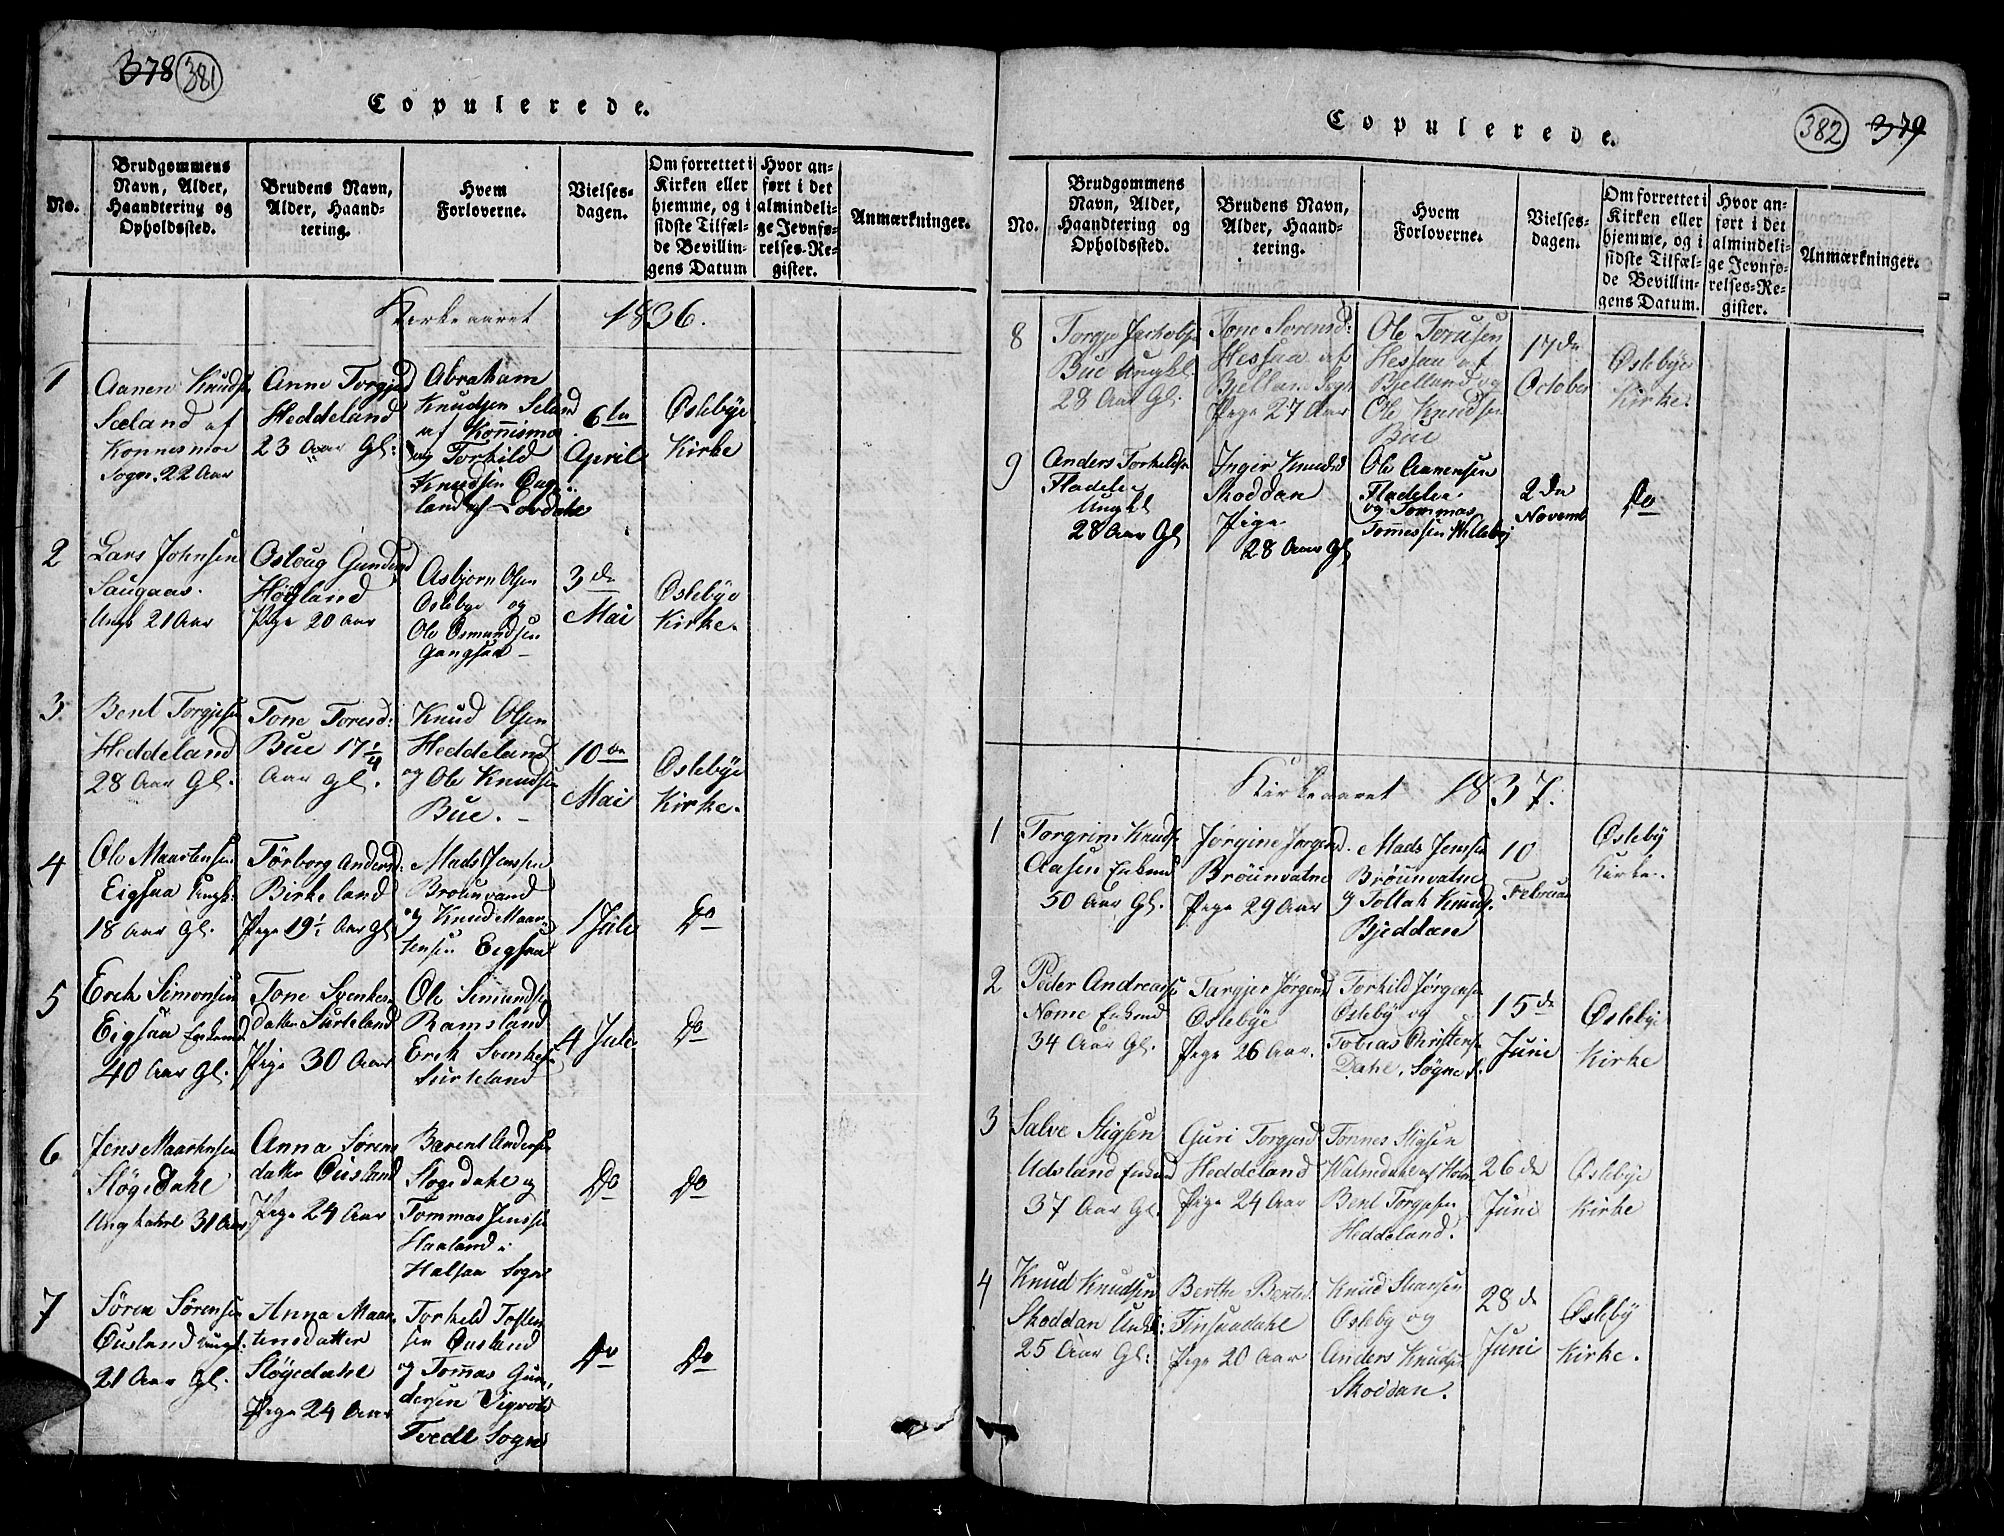 378 381
Copulerede.
No.
Brudgommens
Navn, Alder,
Haandtering og
Opholdssted.
Brudens Navn,
Alder, Haand-
tering.
Hvem
Forloverne.
Vielses-
dagen.
Om forrettet i
Kirken eller
hjemme, og i
sidste Tilfæl-
de Bevillin-
gens Datum
Hvor an-
ført i det
almindeli-
ge Jevnfø-
relses-Re-
gister.
Anmærkninger.
Kirkeaaret 1836.
1
Aanen Knuds
Seeland af
Konnesmoe
Sogn. 22 Aar
Anne Torgjusd
Heddeland
23 Aar Gl:
Abraham
Knudsen Seland
af Konnismo
og Torkild
Knudsen
land af
6te
April
Øslebye
Kirke
2
Lars Johnsen
Saugaas.
Ungk 21 Aar
Osloug Gundersd
Høyland
Pige 20 Aar
Asbjorn Olsen
Oslebye og
Ole Osmundsen
Gangsaa
3de
Mai
Oslebye
Kirke.
3
Bent Torgjesen
Heddeland
28 Aar Gl.
Tone Toresd:
Bue 17 1/4
Aar gl.
Knud Olsen
Heddeland
og Ole Knudsen
Bue.
10de
Mai
Oslebye
Kirke.
4
Ole Maartensen
Eigsaa Ungk:
18 Aar Gl.
Törborg Andersd:
Birkeland
Pige 19 Aar Gl
Mads Jenssen
Brounvand
og Knud Maar
tensen Eigsaa
1 Juli
Do
5
Erik Simonsen
Eigsaa Enkmd
40 Aar Gl.
Tone Svenkes
datter Surteland
Pige 30 Aar
Ole Simundsen
Ramsland
Erik Svenkesen
Surteland
4 Juli
Do
6
Jens Maartensen
Stögedahl
Ungkahrl 31 Aar
Anna Sørens
datter Øusland
Pige 24 Aar
Barent Andersen
Stogedahl og
Tommas Jenssen
Haaland i
Halsaa Sogn
Do
Do
7
Søren Sørensen
Øusland ungk:
21 Aar Gl.
Anna Maar
tensdatter
Stögedahl
Pige 24 Aar
Torkild Tosten
sen Øusland
og Tommas Gun
dersen
Tvedt Sogn
Do
Do
382 379
Copulerede.
No.
Brudgommens
Navn, Alder,
Haandtering og
Opholdssted.
Brudens Navn,
Alder, Haand-
tering.
Hvem
Forloverne.
Vielses-
dagen.
Om forrettet i
Kirken eller
hjemme, og i
sidste Tilfæl-
de Bevillin-
gens Datum.
Hvor an-
ført i det
almindeli-
ge Jevnfø-
relses-Re-
gister.
Anmærkninger.
8
Torgje Jachobs
Bue Ungkl
28 Aar Gl.
Tone Sorensd:
Hessaa af
Bjelland Sogn
Pige 27 Aar
Ole Torusen
Hessaa af
Bjelland og
Ole Knudsen
Bue
17de
October
Oslebye
Kirke.
9
Anders Torkeldsen
Fladeler
Ungkl
28 Aar Gl
Inger Knudsd
Skoddan
Pige
28 Aar Gl
Ole Aanensen
Fladeler
og Tommas
Tomessen Willeböj
2den
Novemb
Do
Kirkeaaret 1837.
1
Torgrim Knuds
Aasen Enkmd
50 Aar Gl.
Jorgine Jorgensd.
Bröunvatne
Pige 29 Aar
Mads Jensen
Bröunvatne
og Tollak Knuds.
Bjeddan
10
Februar
Osleby
Kirke.
2
Peder Andreasse
Nome Enkmd
34 Aar Gl.
Targjer Jørgensd
Oslebye
Pige 26 Aar.
Torkild Jørgensen
Osleby og
Tobias Christensen
Dahl, Søgne S.
15de
Juni
Oslebye
Kirke
3
Salve Stigsen
Udsland Enkmd
37 Aar Gl.
Guri Torgjusd
Heddeland
Pige 24 Aar
Tonnes Stigsen
Walmdahl af Holm
Bent Torgjesen
Heddeland.
26de
Juni
Oslebye
Kirke
4
Knud Knudsen
Skoddan Unkl:
25 Aar Gl.
Berthe Bentsd.
Finsaadahl
Pige 20 Aar
Knud Stensen
Osleby og
Anders Knudsen
Skoddan.
28de
Juni
Osleby
Kirke.